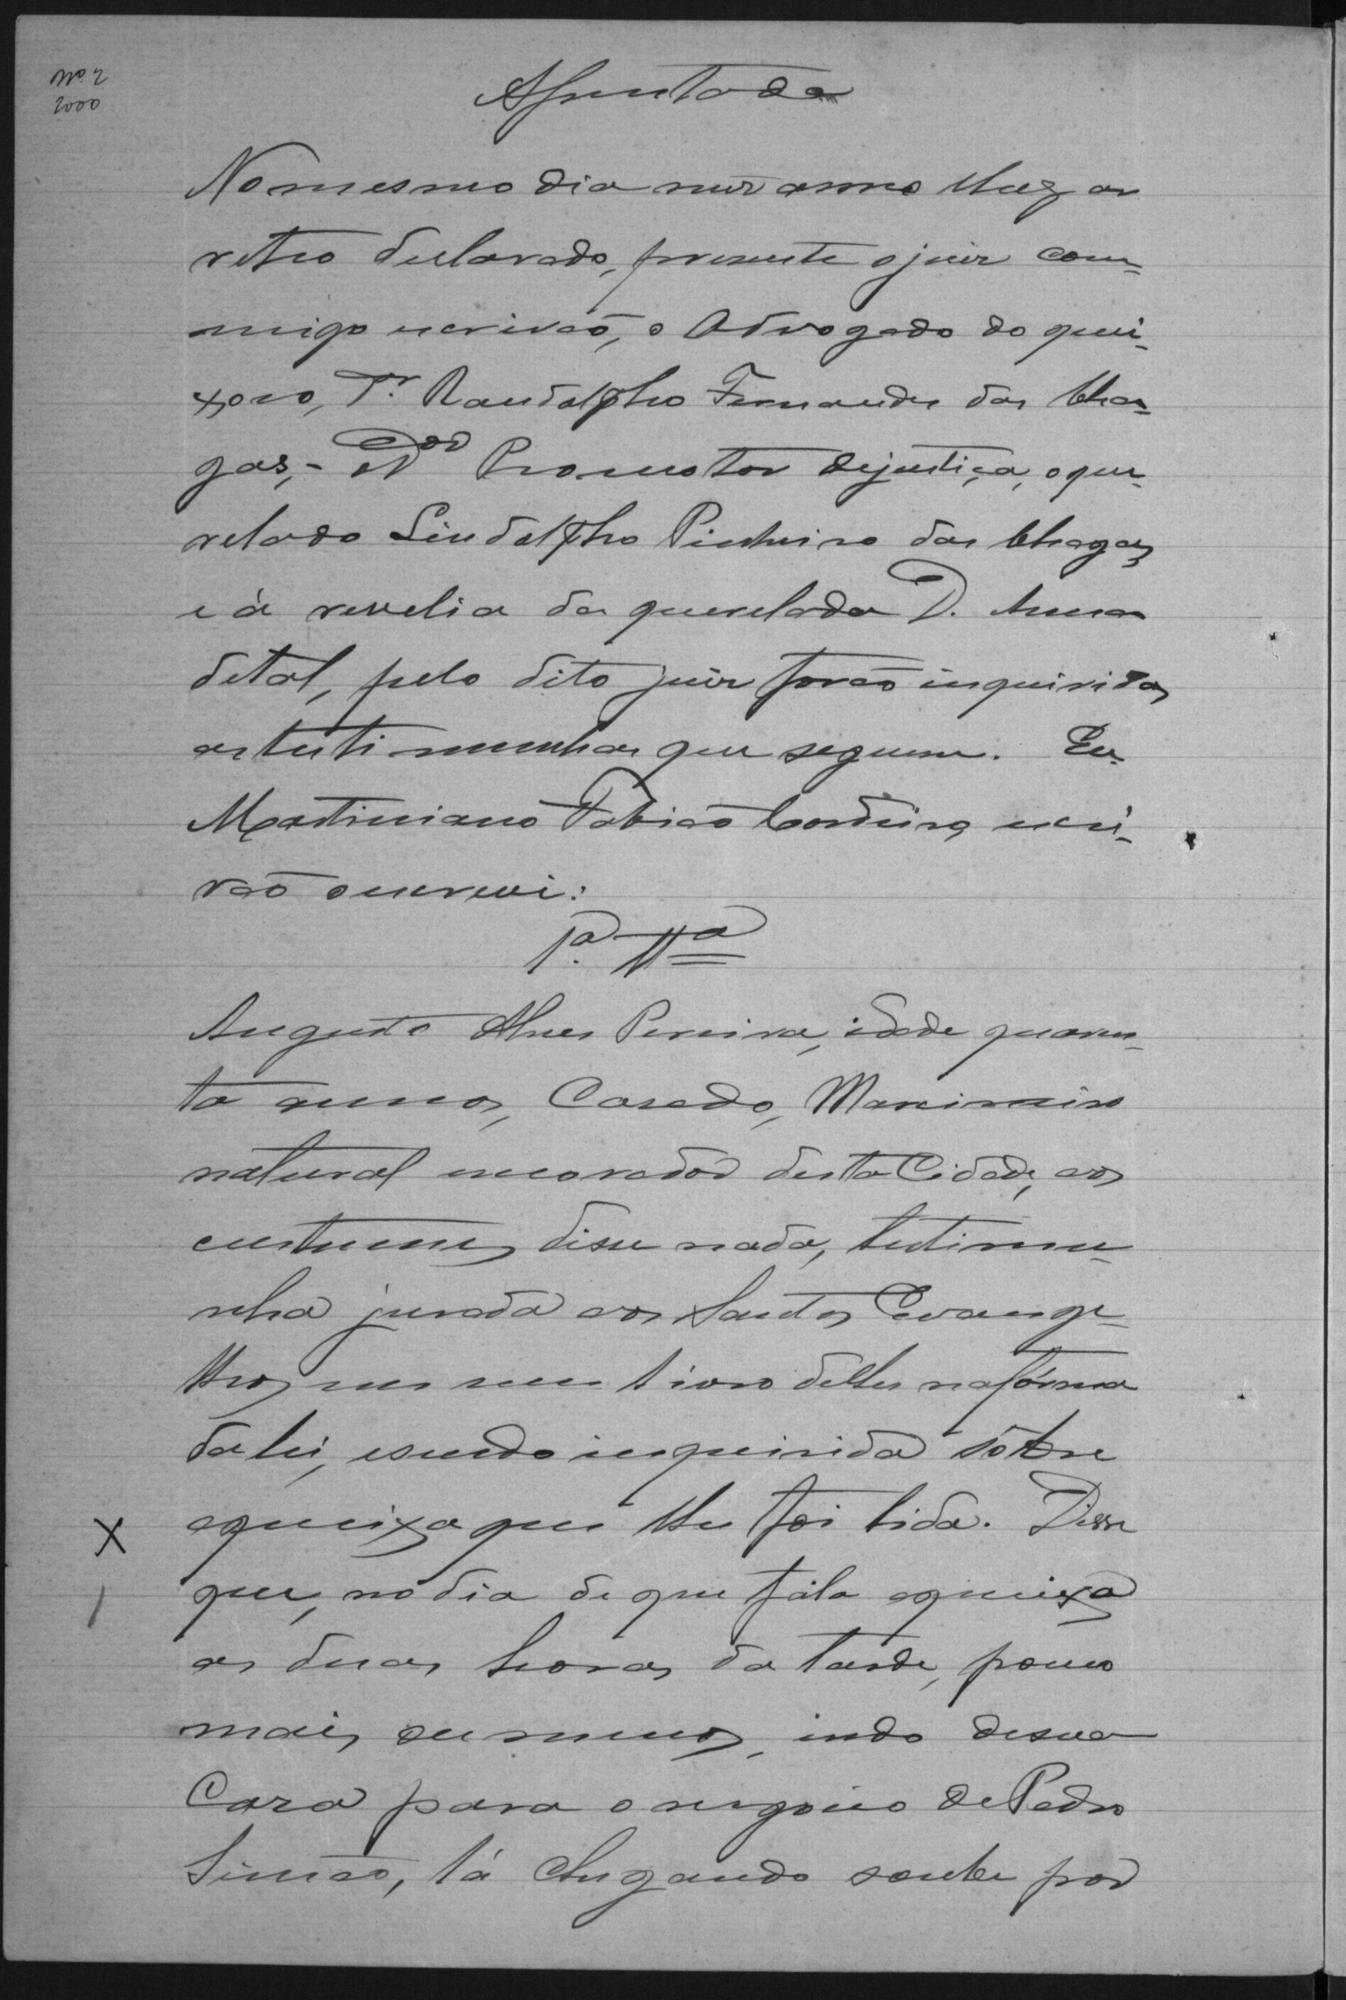 Nº 2
2000
Assentada
No mesmo dia mez anno e lugar
retro declarado, presente o juiz com-
migo escrivaõ, o Advogado do quei-
xoso, Dr. Randolpho Fernandes das Cha-
gas, Promotor dejustiça, o que-
relado Lindolpho Pinheiro das Chagas
e á revelia da querelada D. Anna
de tal, pelo dito juiz foraõ inquiridas
as testimunhas que seguem. Eu
Martiniano Fabiaõ Cordeiro, escri-
vaõ o escrevi:
1ª. Tª
Augusto Alves Pereira, idade quaren-
ta annos, Casado, Marcineiro
natural e morador desta Cidade, aos
custumes disse nada, testimu-
nha jurada aos Santos Evange-
lhos em um livro delles na fórma
da lei, e sendo inquirida sobre
a queixa que lhe foi lida. Disse
que, no dia de que fála a queixa
as duas horas da tarde, pouco
mais ou menos, indo de sua
Casa para o negocio de Pedro
Simaõ, lá chegando soube por
X